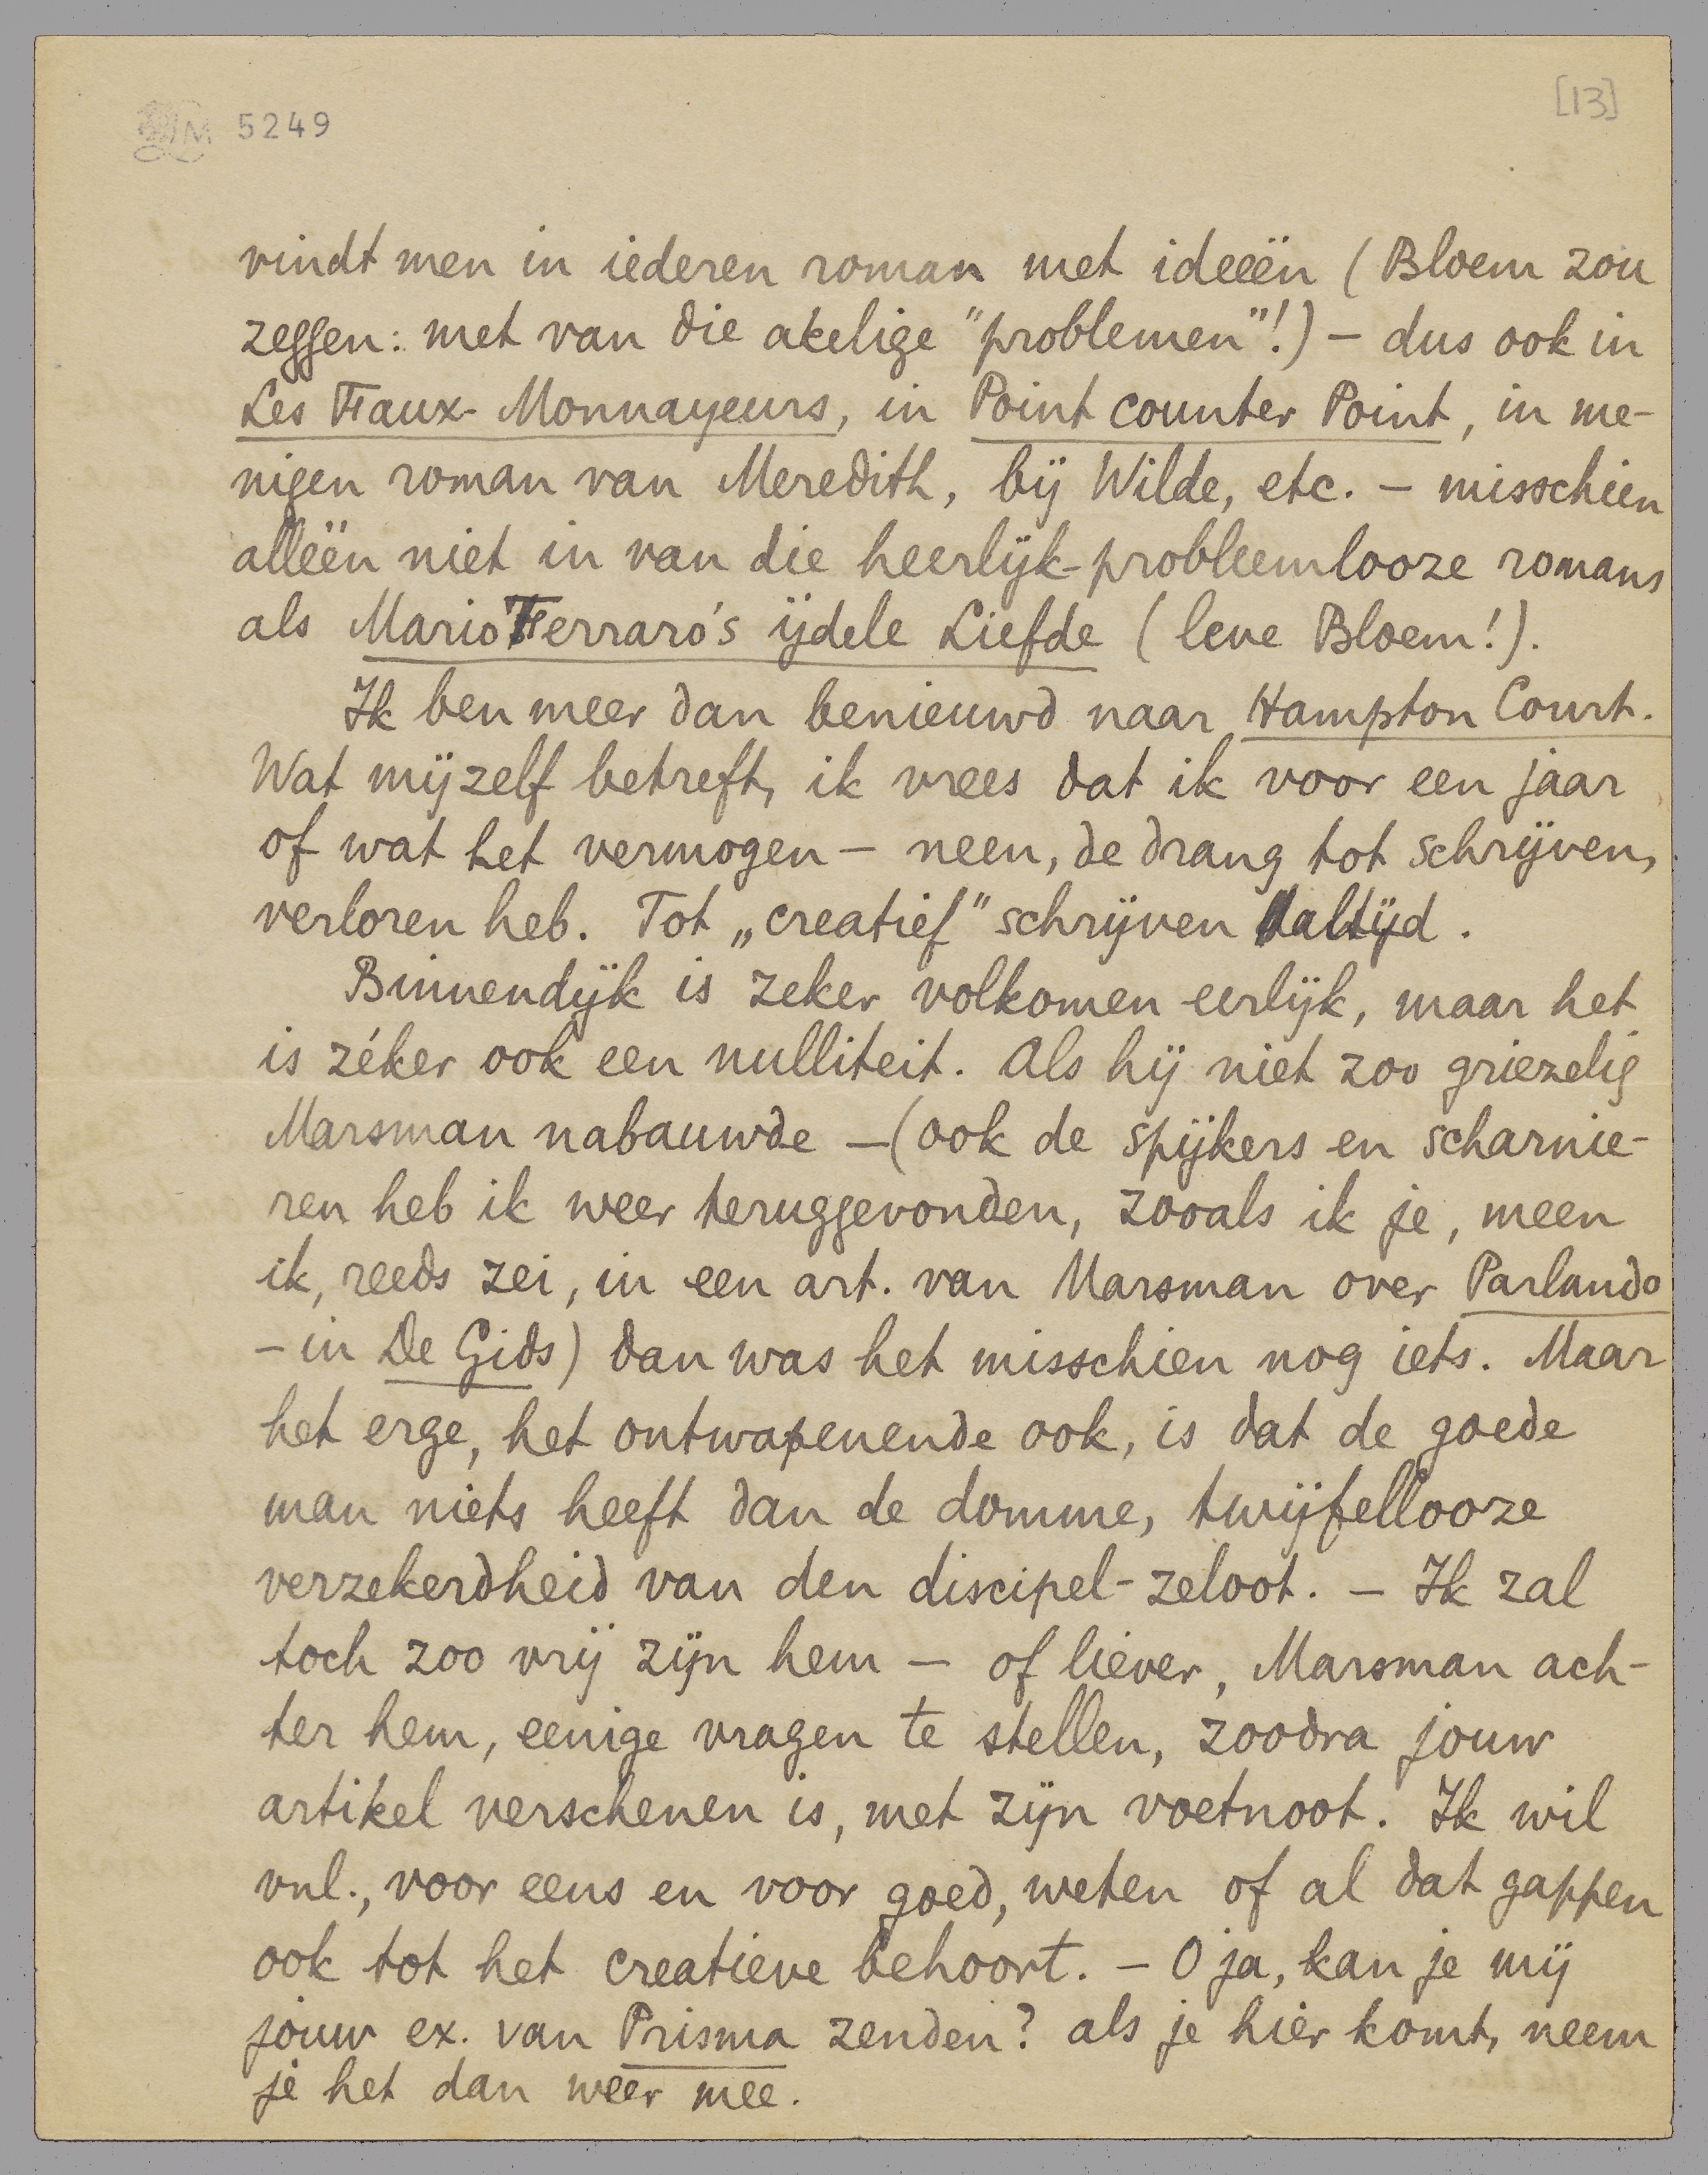 LM 5249
[13]
vindt men in iederen roman met ideeën (Bloem zou
zeggen: met van die akelige "problemen"!) – dus ook in
Les Faux-Monnayeurs, in Point counter Point, in me-
nigen roman van Meredith, bij Wilde, etc. – misschien
alleen niet in van die heerlijk-probleemlooze romans
als Mario Ferraro's ijdele Liefde (leve Bloem!).
Ik ben meer dan benieuwd naar Hampton Court.
Wat mijzelf betreft, ik vrees dat ik voor een jaar
of wat het vermogen – neen, de drang tot schrijven,
verloren heb. Tot „creatief" schrijven altijd.
Binnendijk is zeker volkomen eerlijk, maar het
is zéker ook een nulliteit. Als hij niet zoo griezelig
Marsman nabauwde – (ook de spijkers en scharnie-
ren heb ik weer teruggevonden, zooals ik je, meen
ik, reeds zei, in een art. van Marsman over Parlando
– in De Gids) dan was het misschien nog iets. Maar
het erge, het ontwapenende ook, is dat de goede
man niets heeft dan de domme, twijfellooze
verzekerdheid van den discipel-zeloot. – Ik zal
toch zoo vrij zijn hem – of liever, Marsman ach-
ter hem, eenige vragen te stellen, zoodra jouw
artikel verschenen is, met zijn voetnoot. Ik wil
vnl., voor eens en voor goed, weten of al dat gappen
ook tot het creatieve behoort. – O ja, kan je mij
jouw ex. van Prisma zenden? als je hier komt, neem
je het dan weer mee.